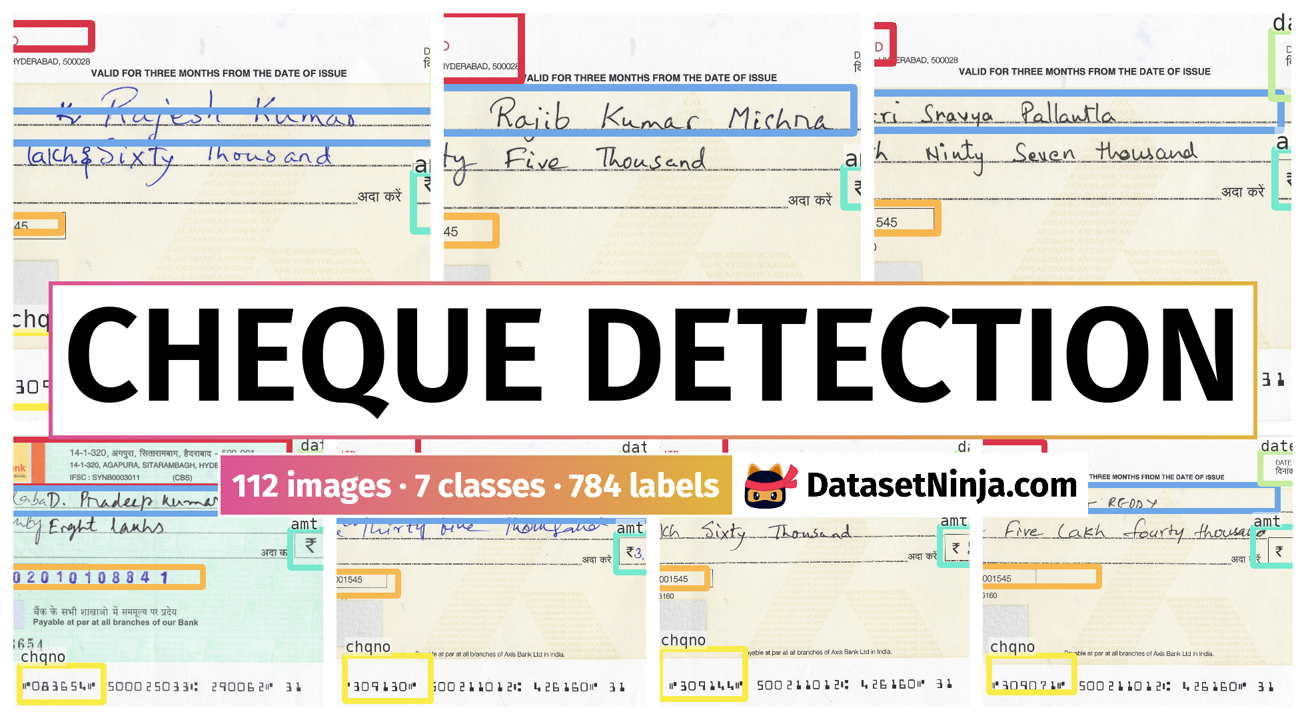 D
HYDERABAD, 500028
VALID FOR THREE MONTHS FROM THE DATE OF ISSUE
Rajesh Kumar
lakh & Sixty Thousand
अदा करें
45
chq
D
HYDERABAD, 500028
VALID FOR THREE MONTHS FROM THE DATE OF ISSUE
Rajib Kumar Mishra
ty Five Thousand
am
₹
अदा करें
45
D
HYDERABAD, 500028
VALID FOR THREE MONTHS FROM THE DATE OF ISSUE
da
ri Sravya Pallavtla
h Ninty Seven thousand
a
₹
अदा करें
545
CHEQUE DETECTION
31
112 images · 7 classes · 784 labels
DatasetNinja.com
14-1-320, अगपुरा, सितारामबाग, हैदराबाद -
14-1-320, AGAPURA, SITARAMBAGH, HYDE
IFSC : SYNB0003011 (CBS)
dat
D. Pradeep Kumar
Eight lakhs
amt
अदा क
₹
02010108841
बैंक के सभी शाखाओ में सममूल्य पर प्रदेय
Payable at par at all branches of our Bank
3654
chqno
"083654" 500025033: 290062" 31
dat
Thirty five Thousand
amt
अदा करें
₹3,
001545
chqno
Payable at par at all branches of Axis Bank Ltd in India.
"309130" 500211012: 426160" 31
da
kh Sixty Thousand
amt
अदा करें
₹
001545
3160
chqno
yable at par at all branches of Axis Bank Ltd in India.
"309144" 500211012: 426160" 31
date
DATE
दिनांक
THREE MONTHS FROM THE DATE OF ISSUE
REDDY
Five Lakh fourty thousand
amt
अदा करें
₹
001545
3160
chqno
Payable at par at all branches of Axis Bank Ltd in India.
"309071" 500211012: 426160" 31